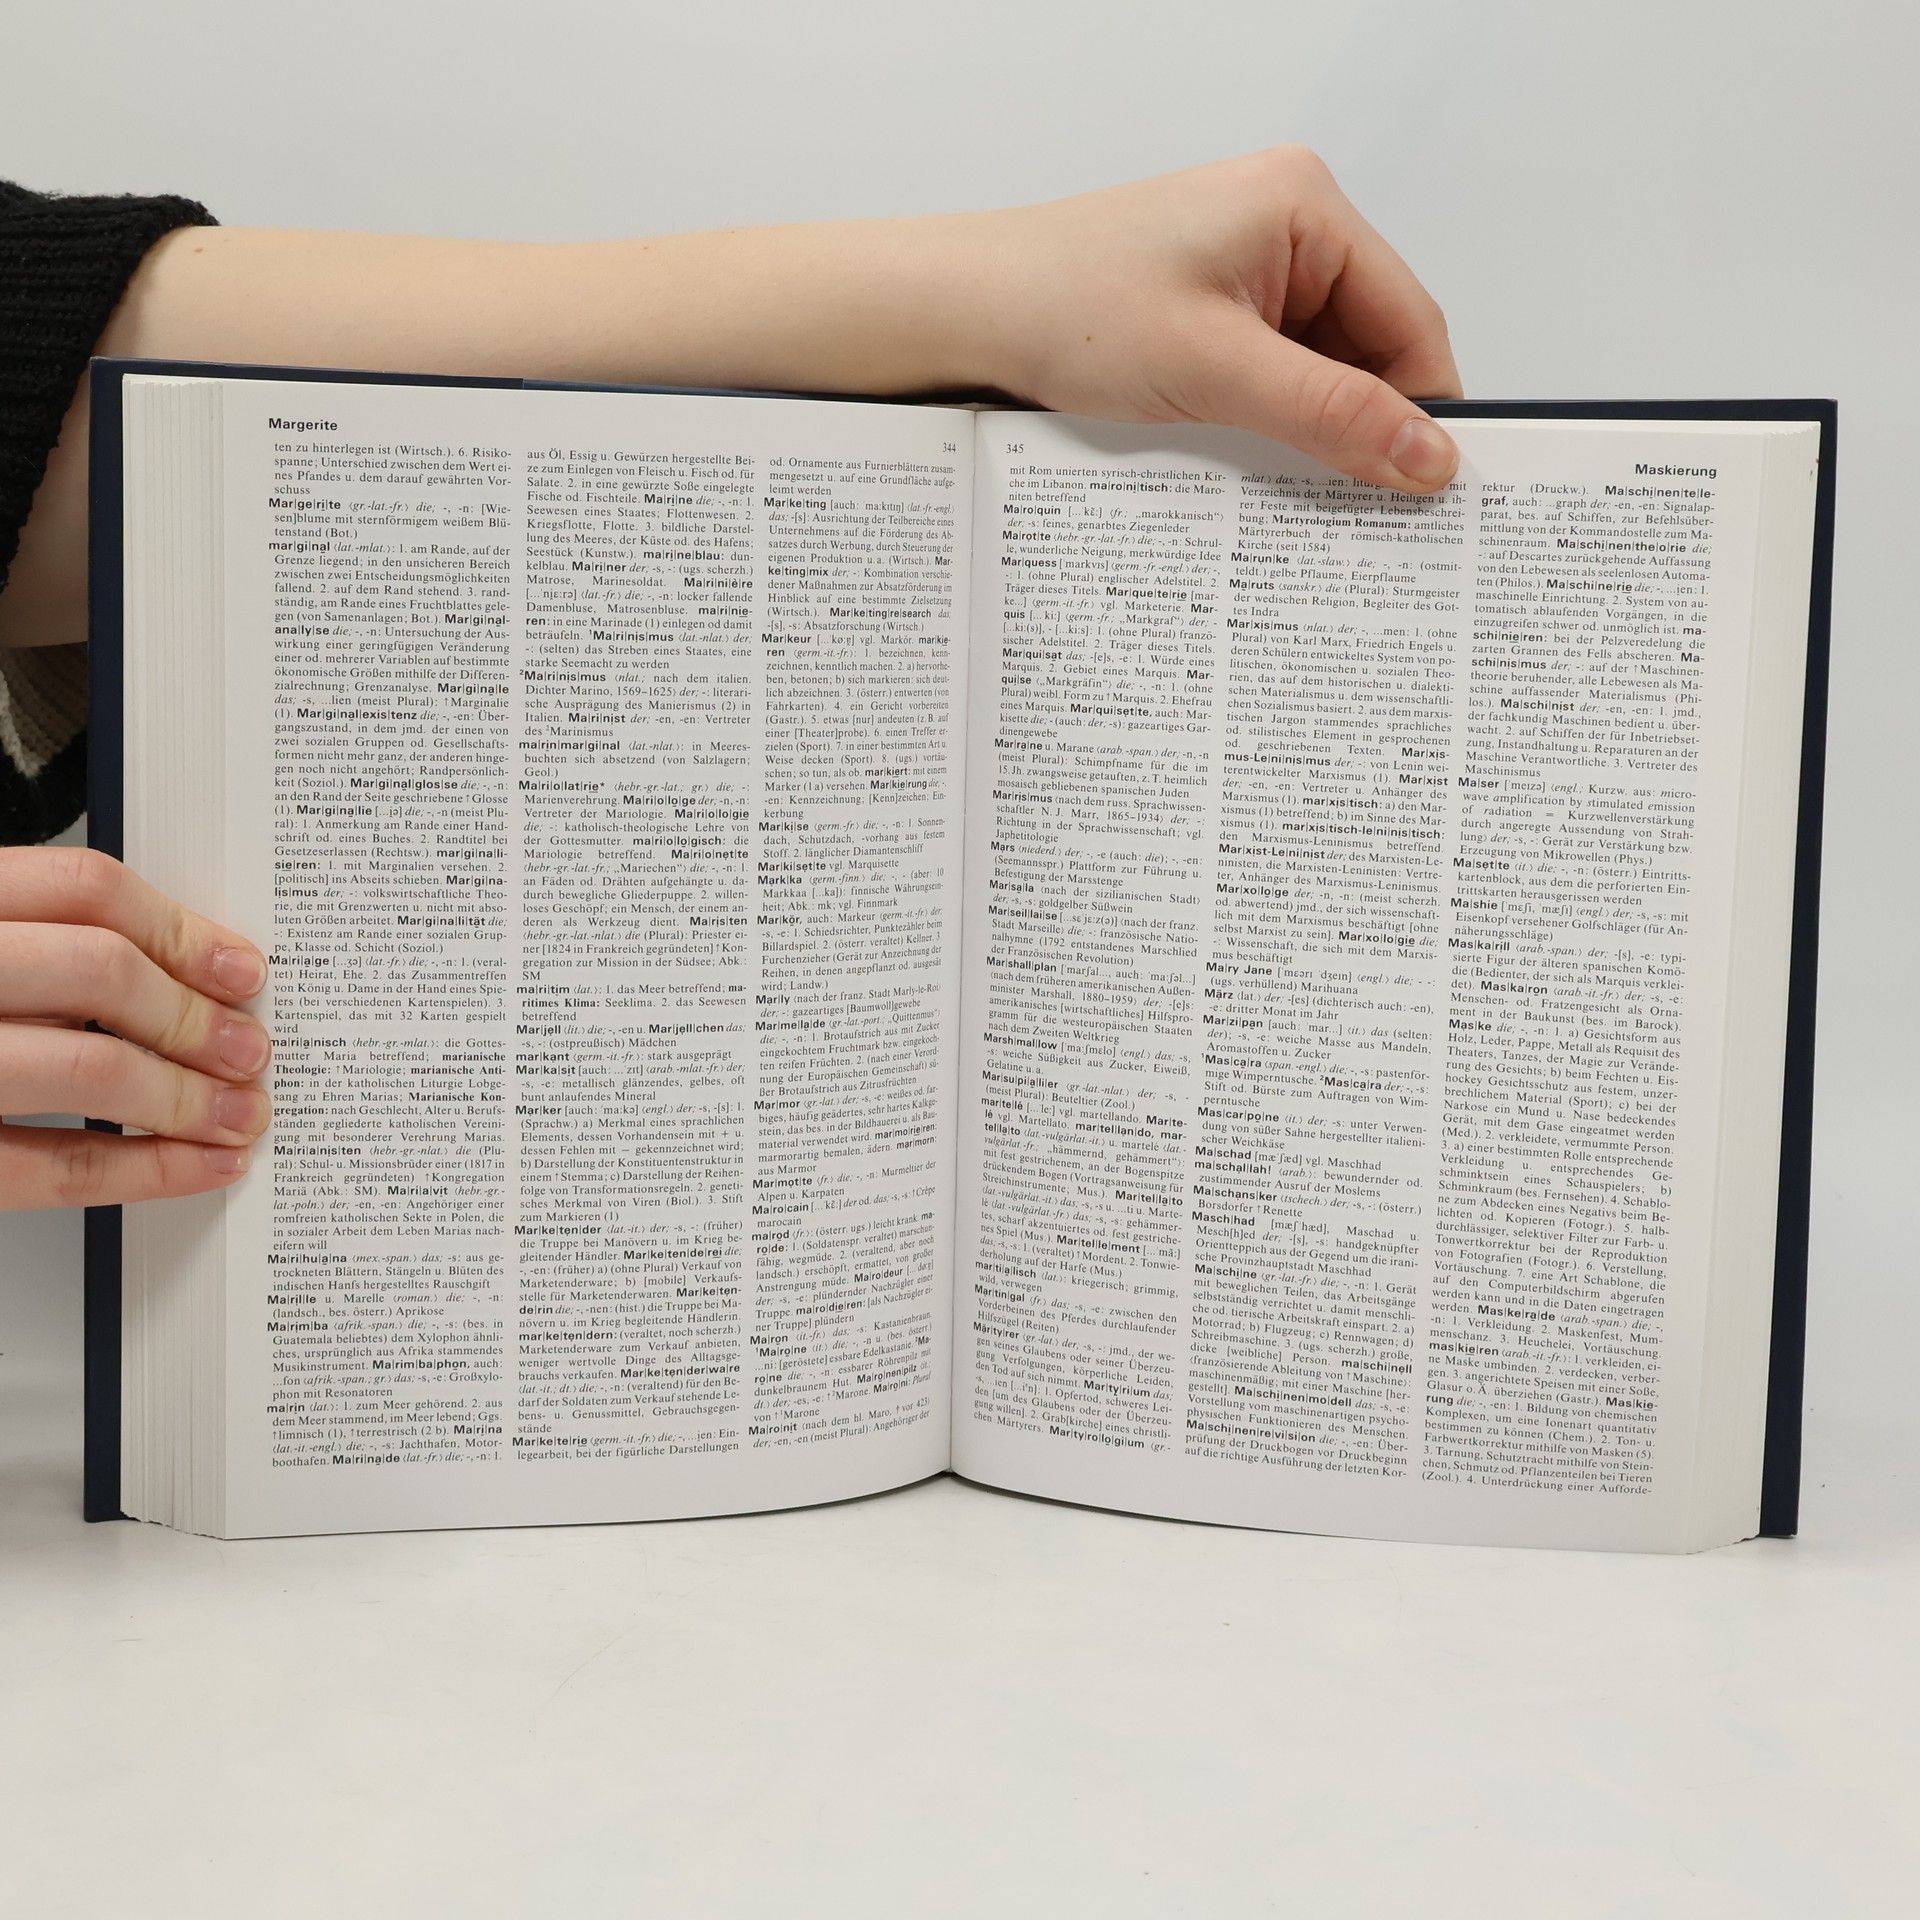 Margerite
344
ten zu hinterlegen ist (Wirtsch.). 6. Risiko-
spanne; Unterschied zwischen dem Wert ei-
nes Pfandes u. dem darauf gewährten Vor-
schuss
Mar|ge|ri|te ⟨gr.-lat.-fr.⟩ die; -, -n: [Wie-
sen]blume mit sternförmigem weißem Blü-
tenstand (Bot.)
mar|gi|nal ⟨lat.-mlat.⟩: 1. am Rande, auf der
Grenze liegend; in den unsicheren Bereich
zwischen zwei Entscheidungsmöglichkeiten
fallend. 2. auf dem Rand stehend. 3. rand-
ständig, am Rande eines Fruchtblattes gele-
gen (von Samenanlagen; Bot.). Mar|gi|nal-
ana|ly|se die; -, -n: Untersuchung der Aus-
wirkung einer geringfügigen Veränderung
einer od. mehrerer Variablen auf bestimmte
ökonomische Größen mithilfe der Differen-
zialrechnung; Grenzanalyse. Mar|gi|na|le
das; -s, ...lien (meist Plural): ↑Marginalie
(1). Mar|gi|nal|exis|tenz die; -, -en: Über-
gangszustand, in dem jmd. der einen von
zwei sozialen Gruppen od. Gesellschafts-
formen nicht mehr ganz, der anderen hinge-
gen noch nicht angehört; Randpersönlich-
keit (Soziol.). Mar|gi|nal|glos|se die; -, -n:
an den Rand der Seite geschriebene ↑Glosse
(1). Mar|gi|na|lie [...i̯ə] die; -, -n (meist Plu-
ral): 1. Anmerkung am Rande einer Hand-
schrift od. eines Buches. 2. Randtitel bei
Gesetzeserlassen (Rechtsw.). mar|gi|na|li-
sie|ren: 1. mit Marginalien versehen. 2.
[politisch] ins Abseits schieben. Mar|gi|na-
lis|mus der; -: volkswirtschaftliche Theo-
rie, die mit Grenzwerten u. nicht mit abso-
luten Größen arbeitet. Mar|gi|na|li|tät die;
-: Existenz am Rande einer sozialen Grup-
pe, Klasse od. Schicht (Soziol.)
Ma|ri|a|ge [...ʒə] ⟨lat.-fr.⟩ die; -, -n: 1. (veral-
tet) Heirat, Ehe. 2. das Zusammentreffen
von König u. Dame in der Hand eines Spie-
lers (bei verschiedenen Kartenspielen). 3.
Kartenspiel, das mit 32 Karten gespielt
wird
ma|ri|a|nisch ⟨hebr.-gr.-mlat.⟩: die Gottes-
mutter Maria betreffend; marianische
Theologie: ↑Mariologie; marianische Anti-
phon: in der katholischen Liturgie Lobge-
sang zu Ehren Marias; Marianische Kon-
gregation: nach Geschlecht, Alter u. Berufs-
ständen gegliederte katholischen Vereini-
gung mit besonderer Verehrung Marias.
Ma|ri|a|nis|ten ⟨hebr.-gr.-nlat.⟩ die (Plu-
ral): Schul- u. Missionsbrüder einer (1817 in
Frankreich gegründeten) ↑Kongregation
Mariä (Abk.: SM). Ma|ri|a|vit ⟨hebr.-gr.-
lat.-poln.⟩ der; -en, -en: Angehöriger einer
romfreien katholischen Sekte in Polen, die
in sozialer Arbeit dem Leben Marias nach-
eifern will
Ma|ri|hu|a|na ⟨mex.-span.⟩ das; -s: aus ge-
trockneten Blättern, Stängeln u. Blüten des
indischen Hanfs hergestelltes Rauschgift
Ma|ril|le u. Marelle ⟨roman.⟩ die; -, -n:
(landsch., bes. österr.) Aprikose
Ma|rim|ba ⟨afrik.-span.⟩ die; -, -s: (bes. in
Guatemala beliebtes) dem Xylophon ähnli-
ches, ursprünglich aus Afrika stammendes
Musikinstrument. Ma|rim|ba|phon, auch:
...fon ⟨afrik.-span.; gr.⟩ das; -s, -e: Großxylo-
phon mit Resonatoren
ma|rin ⟨lat.⟩: 1. zum Meer gehörend. 2. aus
dem Meer stammend, im Meer lebend; Ggs.
↑limnisch (1), ↑terrestrisch (2 b). Ma|ri|na
⟨lat.-it.-engl.⟩ die; -, -s: Jachthafen, Motor-
boothafen. Ma|ri|na|de ⟨lat.-fr.⟩ die; -, -n: 1.
aus Öl, Essig u. Gewürzen hergestellte Bei-
ze zum Einlegen von Fleisch u. Fisch od. für
Salate. 2. in eine gewürzte Soße eingelegte
Fische od. Fischteile. Ma|ri|ne die; -, -n: 1.
Seewesen eines Staates; Flottenwesen. 2.
Kriegsflotte, Flotte. 3. bildliche Darstel-
lung des Meeres, der Küste od. des Hafens;
Seestück (Kunstw.). ma|ri|ne|blau: dun-
kelblau. Ma|ri|ner der; -s, -: (ugs. scherzh.)
Matrose, Marinesoldat. Ma|ri|ni|è|re
[...ni̯ɛːrə] ⟨lat.-fr.⟩ die; -, -n: locker fallende
Damenbluse, Matrosenbluse. ma|ri|nie-
ren: in eine Marinade (1) einlegen od damit
beträufeln. ¹Ma|ri|nis|mus ⟨lat.-nlat.⟩ der;
-: (selten) das Streben eines Staates, eine
starke Seemacht zu werden
²Ma|ri|nis|mus ⟨nlat.; nach dem italien.
Dichter Marino, 1569–1625⟩ der; -: literari-
sche Ausprägung des Manierismus (2) in
Italien. Ma|ri|nist der; -en, -en: Vertreter
des ²Marinismus
ma|rin|mar|gi|nal ⟨lat.-nlat.⟩: in Meeres-
buchten sich absetzend (von Salzlagern;
Geol.)
Ma|ri|o|lat|rie* ⟨hebr.-gr.-lat.; gr.⟩ die; -:
Marienverehrung. Ma|ri|o|lo|ge der; -n, -n:
Vertreter der Mariologie. Ma|ri|o|lo|gie
die; -: katholisch-theologische Lehre von
der Gottesmutter. ma|ri|o|lo|gisch: die
Mariologie betreffend. Ma|ri|o|net|te
⟨hebr.-gr.-lat.-fr.; „Mariechen“⟩ die; -, -n: 1.
an Fäden od. Drähten aufgehängte u. da-
durch bewegliche Gliederpuppe. 2. willen-
loses Geschöpf; ein Mensch, der einem an-
deren als Werkzeug dient. Ma|ris|ten
⟨hebr.-gr.-lat.-nlat.⟩ die (Plural): Priester ei-
ner [1824 in Frankreich gegründeten] ↑Kon-
gregation zur Mission in der Südsee; Abk.:
SM
ma|ri|tim ⟨lat.⟩: 1. das Meer betreffend; ma-
ritimes Klima: Seeklima. 2. das Seewesen
betreffend
Mar|jell ⟨lit.⟩ die; -, -en u. Mar|jell|chen das;
-s, -: (ostpreußisch) Mädchen
mar|kant ⟨germ.-it.-fr.⟩: stark ausgeprägt
Mar|ka|sit [auch: ...ˈzɪt] ⟨arab.-mlat.-fr.⟩ der;
-s, -e: metallisch glänzendes, gelbes, oft
bunt anlaufendes Mineral
Mar|ker [auch: ...ˈmaːkə] ⟨engl.⟩ der; -s, -[s]: 1.
(Sprachw.) a) Merkmal eines sprachlichen
Elements, dessen Vorhandensein mit + u.
dessen Fehlen mit – gekennzeichnet wird;
b) Darstellung der Konstituentenstruktur in
einem ↑Stemma; c) Darstellung der Reihen-
folge von Transformationsregeln. 2. geneti-
sches Merkmal von Viren (Biol.). 3. Stift
zum Markieren (1)
Mar|ke|ten|der ⟨lat.-it.⟩ der; -s, -: (früher)
die Truppe bei Manövern u. im Krieg be-
gleitender Händler. Mar|ke|ten|de|rei die;
-, -en: (früher) a) (ohne Plural) Verkauf von
Marketenderware; b) [mobile] Verkaufs-
stelle für Marketenderwaren. Mar|ke|ten-
de|rin die; -, -nen: (hist.) die Truppe bei Ma-
növern u. im Krieg begleitende Händlerin.
mar|ke|ten|dern: (veraltet, noch scherzh.)
Marketenderware zum Verkauf anbieten,
weniger wertvolle Dinge des Alltagsge-
brauchs verkaufen. Mar|ke|ten|der|wa|re
⟨lat.-it.; dt.⟩ die; -, -n: (veraltend) für den Be-
darf der Soldaten zum Verkauf stehende Le-
bens- u. Genussmittel, Gebrauchsgegen-
stände
Mar|ke|te|rie ⟨germ.-it.-fr.⟩ die; -, ...jen: Ein-
legearbeit, bei der figürliche Darstellungen
od. Ornamente aus Furnierblättern zusam-
mengesetzt u. auf eine Grundfläche aufge-
leimt werden
Mar|ke|ting [auch: ˈmaːkɪtɪŋ] ⟨lat.-fr.-engl.⟩
das; -[s]: Ausrichtung der Teilbereiche eines
Unternehmens auf die Förderung des Ab-
satzes durch Werbung, durch Steuerung der
eigenen Produktion u. a. (Wirtsch.). Mar-
ke|ting|mix der; -: Kombination verschie-
dener Maßnahmen zur Absatzförderung im
Hinblick auf eine bestimmte Zielsetzung
(Wirtsch.). Mar|ke|ting|re|search das;
-[s], -s: Absatzforschung (Wirtsch.)
Mar|keur [...ˈkøːɐ̯] vgl. Markör. mar|kie-
ren ⟨germ.-it.-fr.⟩: 1. bezeichnen, kenn-
zeichnen, kenntlich machen. 2. a) hervorhe-
ben, betonen; b) sich markieren: sich deut-
lich abzeichnen. 3. (österr.) entwerten (von
Fahrkarten). 4. ein Gericht vorbereiten
(Gastr.). 5. etwas [nur] andeuten (z. B. auf
einer [Theater]probe). 6. einen Treffer er-
zielen (Sport). 7. in einer bestimmten Art u.
Weise decken (Sport). 8. (ugs.) vortäu-
schen; so tun, als ob. mar|kiert: mit einem
Marker (1 a) versehen. Mar|kie|rung die; -,
-en: Kennzeichnung, [Kenn]zeichen; Ein-
kerbung
Mar|ki|se ⟨germ.-fr.⟩ die; -, -n: 1. Sonnen-
dach, Schutzdach, -vorhang aus festem
Stoff. 2. länglicher Diamantenschliff
Mar|ki|set|te vgl. Marquisette
Mark|ka ⟨germ.-finn.⟩ die; -, - (aber: 10
Markkaa [...ka]): finnische Währungsein-
heit; Abk.: mk; vgl. Finnmark
Mar|kör, auch: Markeur ⟨germ.-it.-fr.⟩ der;
-s, -e: 1. Schiedsrichter, Punktezähler beim
Billardspiel. 2. (österr. veraltet) Kellner. 3.
Furchenzieher (Gerät zur Anzeichnung der
Reihen, in denen angepflanzt od. ausgesät
wird; Landw.)
Mar|ly ⟨nach der franz. Stadt Marly-le-Roi⟩
der; -: gazeartiges [Baumwoll]gewebe
Mar|me|la|de ⟨gr.-lat.-port.; „Quittenmus“⟩
die; -, -n: 1. Brotaufstrich aus mit Zucker
eingekochtem Fruchtmark bzw. eingekoch-
ten reifen Früchten. 2. (nach einer Verord-
nung der Europäischen Gemeinschaft) sü-
ßer Brotaufstrich aus Zitrusfrüchten
Mar|mor ⟨gr.-lat.⟩ der; -s, -e: weißes od. far-
biges, häufig geädertes, sehr hartes Kalkge-
stein, das bes. in der Bildhauerei u. als Bau-
material verwendet wird. mar|mo|rie|ren:
marmorartig bemalen, ädern. mar|morn:
aus Marmor
Mar|mot|te ⟨fr.⟩ die; -, -n: Murmeltier der
Alpen u. Karpaten
Ma|ro|cain [...kɛ̃ː] der od. das; -s, -s: ↑Crêpe
marocain
ma|rod ⟨fr.⟩: (österr. ugs.) leicht krank. ma-
ro|de: 1. (Soldatenspr. veraltet) marschun-
fähig, wegmüde. 2. (veraltend, aber noch
landsch.) erschöpft, ermattet, von großer
Anstrengung müde. Ma|ro|deur [...døːɐ̯]
der; -s, -e: plündernder Nachzügler einer
Truppe. ma|ro|die|ren: [als Nachzügler ei-
ner Truppe] plündern
Ma|ron ⟨it.-fr.⟩ das; -s: Kastanienbraun.
¹Ma|ro|ne ⟨it.⟩ die; -, -n u. (bes. österr.)
...ni: [geröstete] essbare Edelkastanie. ²Ma-
ro|ne die; -, -n: essbarer Röhrenpilz mit
dunkelbraunem Hut. Ma|ro|nen|pilz ⟨it.;
dt.⟩ der; -es, -e: ↑²Marone. Ma|ro|ni: Plural
von ↑¹Marone
Ma|ro|nit ⟨nach dem hl. Maro, † vor 423⟩
der; -en, -en (meist Plural): Angehöriger der
345
Maskierung
mit Rom unierten syrisch-christlichen Kir-
che im Libanon. ma|ro|ni|tisch: die Maro-
niten betreffend
Ma|ro|quin [...kɛ̃ː] ⟨fr.; „marokkanisch“⟩
der; -s: feines, genarbtes Ziegenleder
Ma|rot|te ⟨hebr.-gr.-lat.-fr.⟩ die; -, -n: Schrul-
le, wunderliche Neigung, merkwürdige Idee
Mar|quess [ˈmarkvɪs] ⟨germ.-fr.-engl.⟩ der; -,
-: 1. (ohne Plural) englischer Adelstitel. 2.
Träger dieses Titels. Mar|que|te|rie [mar-
ke...] ⟨germ.-it.-fr.⟩ vgl. Marketerie. Mar-
quis [...kiː] ⟨germ.-fr.; „Markgraf“⟩ der; -
[...kiː(s)], - [...kiːs]: 1. (ohne Plural) franzö-
sischer Adelstitel. 2. Träger dieses Titels.
Mar|qui|sat das; -[e]s, -e: 1. Würde eines
Marquis. 2. Gebiet eines Marquis. Mar-
qui|se ⟨„Markgräfin“⟩ die; -, -n: 1. (ohne
Plural) weibl. Form zu ↑Marquis. 2. Ehefrau
eines Marquis. Mar|qui|set|te, auch: Mar-
kisette die; - (auch: der; -s): gazeartiges Gar-
dinengewebe
Mar|ra|ne u. Marane ⟨arab.-span.⟩ der; -n, -n
(meist Plural): Schimpfname für die im
15. Jh. zwangsweise getauften, z. T. heimlich
mosaisch gebliebenen spanischen Juden
Mar|ris|mus ⟨nach dem russ. Sprachwissen-
schaftler N. J. Marr, 1865–1934⟩ der; -:
Richtung in der Sprachwissenschaft; vgl.
Japhetitologie
Mars ⟨niederd.⟩ der; -, -e (auch: die); -, -en:
(Seemannsspr.) Plattform zur Führung u.
Befestigung der Marsstenge
Mar|sa|la ⟨nach der sizilianischen Stadt⟩
der; -s, -s: goldgelber Süßwein
Mar|seil|lai|se [...sɛˈjɛːz(ə)] ⟨nach der franz.
Stadt Marseille⟩ die; -: französische Natio-
nalhymne (1792 entstandenes Marschlied
der Französischen Revolution)
Mar|shall|plan [ˈmarʃal..., auch: ˈmaːʃəl...]
⟨nach dem früheren amerikanischen Außen-
minister Marshall, 1880–1959⟩ der; -[e]s:
amerikanisches [wirtschaftliches] Hilfspro-
gramm für die westeuropäischen Staaten
nach dem Zweiten Weltkrieg
Marsh|mal|low [ˈmaːʃmɛlo] ⟨engl.⟩ das; -s,
-s: weiche Süßigkeit aus Zucker, Eiweiß,
Gelatine u. a.
Mar|su|pi|a|li|er ⟨gr.-lat.-nlat.⟩ der; -s, -
(meist Plural): Beuteltier (Zool.)
mar|te|lé [...leː] vgl. martellando. Mar|te-
lé vgl. Martellato. mar|tel|lan|do, mar-
tel|la|to ⟨lat.-vulgärlat.-it.⟩ u. martelé ⟨lat.-
vulgärlat.-fr.; „hämmernd, gehämmert“⟩:
mit fest gestrichenem, an der Bogenspitze
drückendem Bogen (Vortragsanweisung für
Streichinstrumente; Mus.). Mar|tel|la|to
⟨lat.-vulgärlat.-it.⟩ das; -s, -s u. ...ti u. Marte-
lé ⟨lat.-vulgärlat.-fr.⟩ das; -s, -s: gehämmer-
tes, scharf akzentuiertes od. fest gestriche-
nes Spiel (Mus.). Mar|tel|le|ment [...mãː]
das; -s, -s: 1. (veraltet) ↑Mordent. 2. Tonwie-
derholung auf der Harfe (Mus.)
mar|ti|a|lisch ⟨lat.⟩: kriegerisch; grimmig,
wild, verwegen
Mar|tin|gal ⟨fr.⟩ das; -s, -e: zwischen den
Vorderbeinen des Pferdes durchlaufender
Hilfszügel (Reiten)
Mär|ty|rer ⟨gr.-lat.⟩ der; -s, -: jmd., der we-
gen seines Glaubens oder seiner Überzeu-
gung Verfolgungen, körperliche Leiden,
den Tod auf sich nimmt. Mar|ty|ri|um das;
-s, ...ien [...i̯ən]: 1. Opfertod, schweres Lei-
den [um des Glaubens oder der Überzeu-
gung willen]. 2. Grab[kirche] eines christli-
chen Märtyrers. Mar|ty|ro|lo|gi|um ⟨gr.-
mlat.⟩ das; -s, ...ien: mit
Verzeichnis der Märtyrer u. Heiligen u. ih-
rer Feste mit beigefügter Lebensbeschrei-
bung; Martyrologium Romanum: amtliches
Märtyrerbuch der römisch-katholischen
Kirche (seit 1584)
Ma|run|ke ⟨lat.-slaw.⟩ die; -, -n: (ostmit-
teldt.) gelbe Pflaume, Eierpflaume
Ma|ruts ⟨sanskr.⟩ die (Plural): Sturmgeister
der wedischen Religion, Begleiter des Got-
tes Indra
Mar|xis|mus ⟨nlat.⟩ der; -, ...men: 1. (ohne
Plural) von Karl Marx, Friedrich Engels u.
deren Schülern entwickeltes System von po-
litischen, ökonomischen u. sozialen Theo-
rien, das auf dem historischen u. dialekti-
schen Materialismus u. dem wissenschaftli-
chen Sozialismus basiert. 2. aus dem marxis-
tischen Jargon stammendes sprachliches
od. stilistisches Element in gesprochenen
od. geschriebenen Texten. Mar|xis-
mus-Le|ni|nis|mus der; -: von Lenin wei-
terentwickelter Marxismus (1). Mar|xist
der; -en, -en: Vertreter u. Anhänger des
Marxismus (1). mar|xis|tisch: a) den Mar-
xismus (1) betreffend; b) im Sinne des Mar-
xismus (1). mar|xis|tisch-le|ni|nis|tisch:
den Marxismus-Leninismus betreffend.
Mar|xist-Le|ni|nist der; des Marxisten-Le-
ninisten, die Marxisten-Leninisten: Vertre-
ter, Anhänger des Marxismus-Leninismus.
Mar|xo|lo|ge der; -n, -n (meist scherzh.
od. abwertend) jmd., der sich wissenschaft-
lich mit dem Marxismus beschäftigt [ohne
selbst Marxist zu sein]. Mar|xo|lo|gie die;
-: Wissenschaft, die sich mit dem Marxis-
mus beschäftigt
Ma|ry Jane [ˈmɛərɪ ˈdʒeɪn] ⟨engl.⟩ die; - -:
(ugs. verhüllend) Marihuana
März ⟨lat.⟩ der; -[es] (dichterisch auch: -en),
-e: dritter Monat im Jahr
Mar|zi|pan [auch: mar...] ⟨it.⟩ das (selten:
der); -s, -e: weiche Masse aus Mandeln,
Aromastoffen u. Zucker
¹Mas|ca|ra ⟨span.-engl.⟩ die; -, -s: pastenför-
mige Wimperntusche. ²Mas|ca|ra der; -, -s:
Stift od. Bürste zum Auftragen von Wim-
perntusche
Mas|car|po|ne ⟨it.⟩ der; -s: unter Verwen-
dung von süßer Sahne hergestellter italieni-
scher Weichkäse
Ma|schad [mæˈʃæd] vgl. Maschhad
ma|schal|lah! ⟨arab.⟩: bewundernder od.
zustimmender Ausruf der Moslems
Ma|schans|ker ⟨tschech.⟩ der; -s, -: (österr.)
Borsdorfer ↑Renette
Masch|had [mæʃˈhæd], Maschad u.
Mesch[h]ed der; -[s], -s: handgeknüpfter
Orientteppich aus der Gegend um die irani-
sche Provinzhauptstadt Maschhad
Ma|schi|ne ⟨gr.-lat.-fr.⟩ die; -, -n: 1. Gerät
mit beweglichen Teilen, das Arbeitsgänge
selbstständig verrichtet u. damit menschli-
che od. tierische Arbeitskraft einspart. 2. a)
Motorrad; b) Flugzeug; c) Rennwagen; d)
Schreibmaschine. 3. (ugs. scherzh.) große,
dicke [weibliche] Person. ma|schi|nell
⟨französierende Ableitung von ↑Maschine⟩:
maschinenmäßig; mit einer Maschine [her-
gestellt]. Ma|schi|nen|mo|dell das; -s, -e:
Vorstellung vom maschinenartigen psycho-
physischen Funktionieren des Menschen.
Ma|schi|nen|re|vi|si|on die; -, -en: Über-
prüfung der Druckbogen vor Druckbeginn
auf die richtige Ausführung der letzten Kor-
rektur (Druckw.). Ma|schi|nen|te|le-
graf, auch: ...graph der; -en, -en: Signalap-
parat, bes. auf Schiffen, zur Befehlsüber-
mittlung von der Kommandostelle zum Ma-
schinenraum. Ma|schi|nen|the|o|rie die;
-: auf Descartes zurückgehende Auffassung
von den Lebewesen als seelenlosen Automa-
ten (Philos.). Ma|schi|ne|rie die; -, ...jen: 1.
maschinelle Einrichtung. 2. System von au-
tomatisch ablaufenden Vorgängen, in die
einzugreifen schwer od. unmöglich ist. ma-
schi|nie|ren: bei der Pelzveredelung die
zarten Grannen des Fells abscheren. Ma-
schi|nis|mus der; -: auf der ↑Maschinen-
theorie beruhender, alle Lebewesen als Ma-
schine auffassender Materialismus (Phi-
los.). Ma|schi|nist der; -en, -en: 1. jmd.,
der fachkundig Maschinen bedient u. über-
wacht. 2. auf Schiffen der für Inbetriebset-
zung, Instandhaltung u. Reparaturen an der
Maschine Verantwortliche. 3. Vertreter des
Maschinismus
Ma|ser [ˈmeɪzə] ⟨engl.; Kurzw. aus: micro-
wave amplification by stimulated emission
of radiation = Kurzwellenverstärkung
durch angeregte Aussendung von Strah-
lung⟩ der; -s, -: Gerät zur Verstärkung bzw.
Erzeugung von Mikrowellen (Phys.)
Ma|set|te ⟨it.⟩ die; -, -n: (österr.) Eintritts-
kartenblock, aus dem die perforierten Ein-
trittskarten herausgerissen werden
Ma|shie [ˈmɛʃi, ˈmæʃi] ⟨engl.⟩ der; -s, -s: mit
Eisenkopf versehener Golfschläger (für An-
näherungsschläge)
Mas|ka|rill ⟨arab.-span.⟩ der; -[s], -e: typi-
sierte Figur der älteren spanischen Komö-
die (Bedienter, der sich als Marquis verklei-
det). Mas|ka|ron ⟨arab.-it.-fr.⟩ der; -s, -e:
Menschen- od. Fratzengesicht als Orna-
ment in der Baukunst (bes. im Barock).
Mas|ke die; -, -n: 1. a) Gesichtsform aus
Holz, Leder, Pappe, Metall als Requisit des
Theaters, Tanzes, der Magie zur Verände-
rung des Gesichts; b) beim Fechten u. Eis-
hockey Gesichtsschutz aus festem, unzer-
brechlichem Material (Sport); c) bei der
Narkose ein Mund u. Nase bedeckendes
Gerät, mit dem Gase eingeatmet werden
(Med.). 2. verkleidete, vermummte Person.
3. a) einer bestimmten Rolle entsprechende
Verkleidung u. entsprechendes Ge-
schminktsein eines Schauspielers; b)
Schminkraum (bes. Fernsehen). 4. Schablo-
ne zum Abdecken eines Negativs beim Be-
lichten od. Kopieren (Fotogr.). 5. halb-
durchlässiger, selektiver Filter zur Farb- u.
Tonwertkorrektur bei der Reproduktion
von Fotografien (Fotogr.). 6. Verstellung,
Vortäuschung. 7. eine Art Schablone, die
auf den Computerbildschirm abgerufen
werden kann und in die Daten eingetragen
werden. Mas|ke|ra|de ⟨arab.-span.⟩ die; -,
-n: 1. Verkleidung. 2. Maskenfest, Mum-
menschanz. 3. Heuchelei, Vortäuschung.
mas|kie|ren ⟨arab.-it.-fr.⟩: 1. verkleiden, ei-
ne Maske umbinden. 2. verdecken, verber-
gen. 3. angerichtete Speisen mit einer Soße,
Glasur o. Ä. überziehen (Gastr.). Mas|kie-
rung die; -, -en: 1. Bildung von chemischen
Komplexen, um eine Ionenart quantitativ
bestimmen zu können (Chem.). 2. Ton- u.
Farbwertkorrektur mithilfe von Masken (5).
3. Tarnung, Schutztracht mithilfe von Stein-
chen, Schmutz od. Pflanzenteilen bei Tieren
(Zool.). 4. Unterdrückung einer Aufforde-